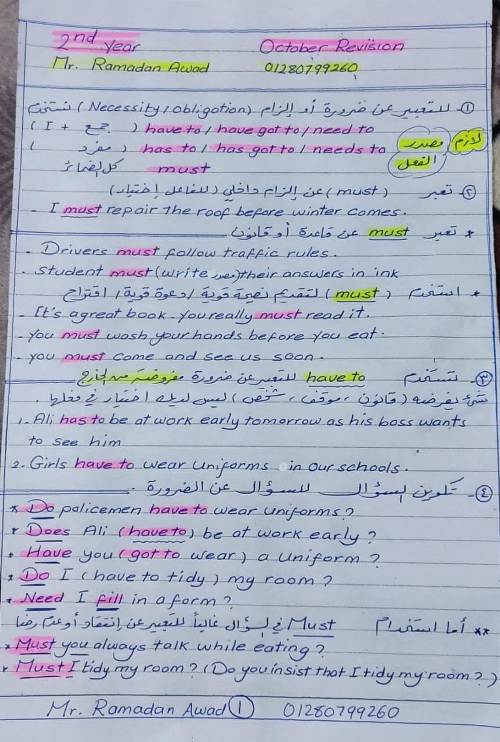 2nd Year October Revision
Mr. Ramadan Awad 01280799260
①- للتعبير عن ضرورة أو إلزام (Necessity/obligation) نستخدم
( I + جمع ) have to / have got to / need to
( مفرد ) has to / has got to / needs to لازم مصدر الفعل
must كل الضمائر
②- تعبر (must) عن إلزام داخلي (للفاعل إختيار)
- I must repair the roof before winter comes.
* تعبر must عن قاعدة أو قانون
- Drivers must follow traffic rules.
- student must (write مصدر) their answers in ink
* استخدم (must) لتقديم نصيحة قوية / دعوة قوية / اقتراح
- It's agreat book - you really must read it.
- you must wash your hands before you eat.
- you must come and see us soon.
③- تستخدم have to للتعبير عن ضرورة مفروضة من الخارج
شئ يفرضه (قانون، موقف، شخص) ليس لديك اختيار في فعلها.
1. Ali has to be at work early tomorrow as his boss wants
to see him
2. Girls have to wear uniforms in our schools.
④- تكوين السؤال للسؤال عن الضرورة.
* Do policemen have to wear uniforms?
* Does Ali (have to) be at work early?
* Have you (got to wear) a uniform?
* Do I (have to tidy) my room?
* Need I fill in a form?
** أما استخدام Must في السؤال غالباً للتعبير عن إنتقاد أو عدم رضا
* Must you always talk while eating?
* Must I tidy my room? (Do you insist that I tidy my room?)
Mr. Ramadan Awad ① 01280799260